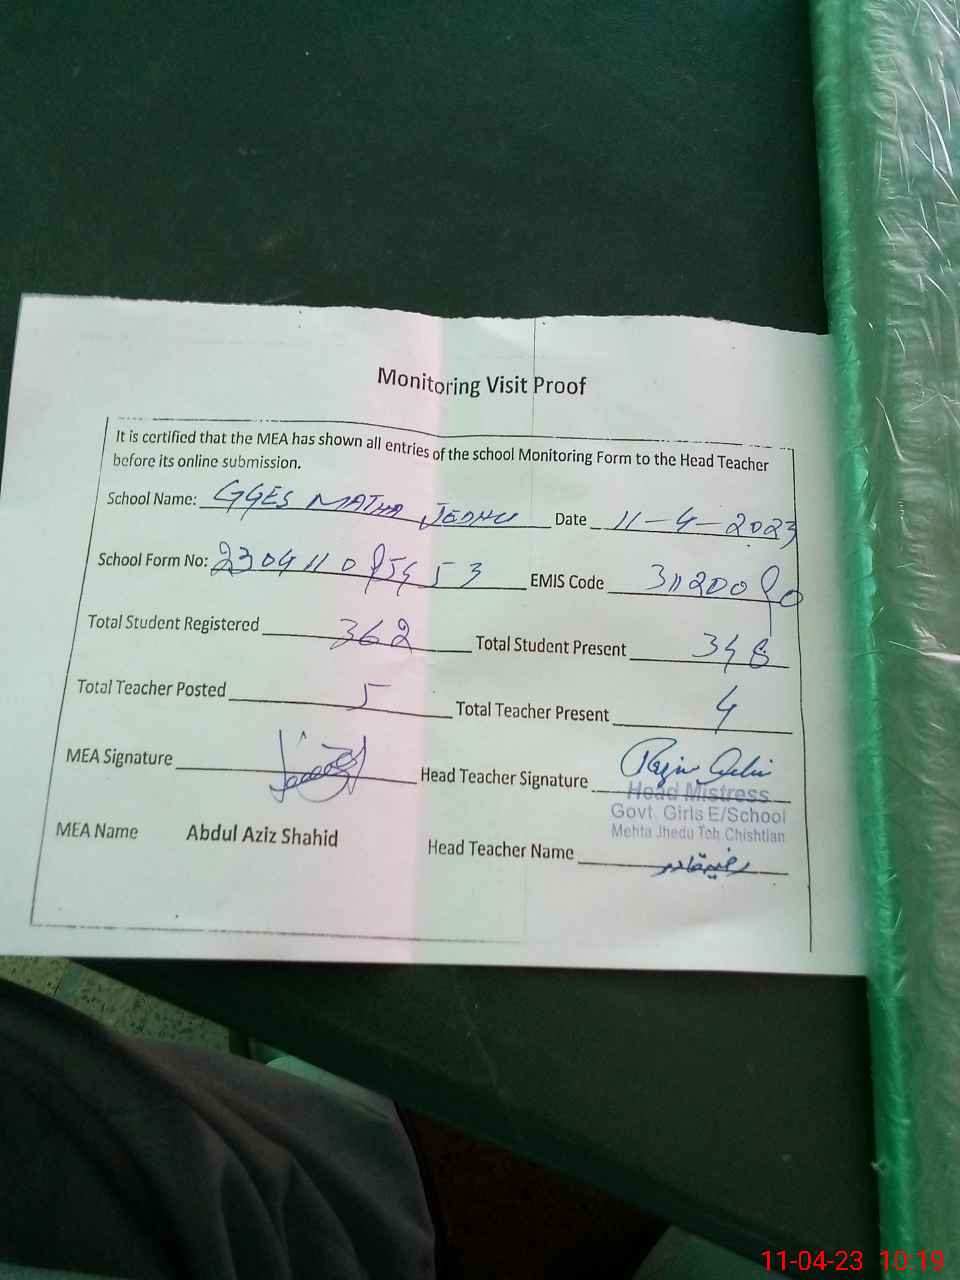 Monitoring Visit Proof
It is certified that the MEA has shown all entries of the school Monitoring Form to the Head Teacher
before its online submission.
School Name: GGES MATHA JEDHU Date 11-4-2023
School Form No: EMIS Code
Total Student Registered 362 Total Student Present 348
Total Teacher Posted 5 Total Teacher Present 4
MEA Signature Head Teacher Signature
Head Mistress
Govt. Girls E/School
Mehta Jhedu Teh. Chishtian
MEA Name Abdul Aziz Shahid Head Teacher Name
11-04-23 10:19